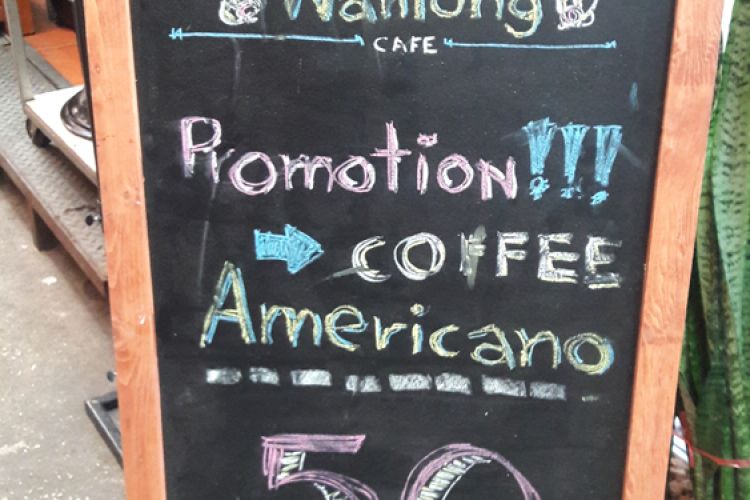 Wanlong
CAFE
Promotion!!!
COFFEE
Americano
50